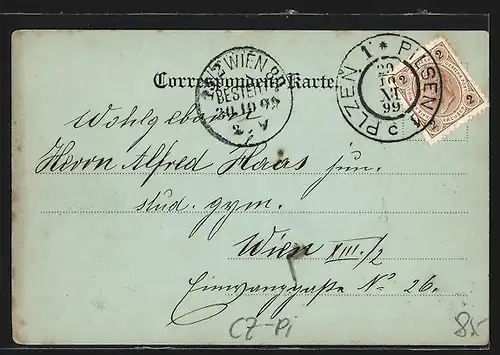 Correspondenz-Karte.
WIEN
BESTELLT
30.10.99
PLZEŇ 1 * PILSEN
99
2
2
2
Wohlgeboren
Herrn Alfred Haas jun.
stud. gym.
Wien XIII./2
Einwanggasse No 26.
CZ-Pi
85